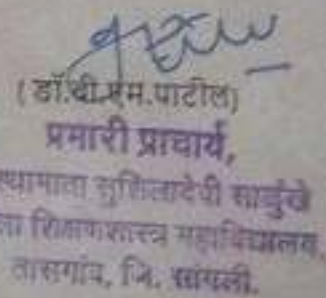 (डॉ.बी.एम.पाटील)
प्रभारी प्राचार्य,
स्थामाता सुशिलादेवी साळुंखे
ला शिक्षणशास्त्र महाविद्यालय,
तासगांव, जि. सांगली.